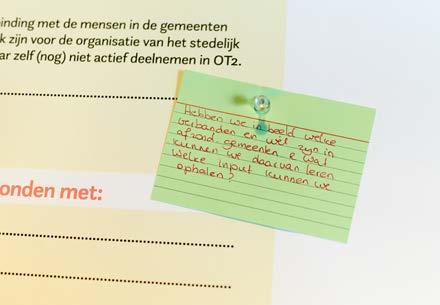 inding met de mensen in de gemeenten
k zijn voor de organisatie van het stedelijk
ar zelf (nog) niet actief deelnemen in OT2.
Hebben we in beeld welke
verbanden en wel zijn in
afzond. gemeenten & wat
kunnen we daarvan leren
welke input kunnen we
ophalen?
onden met: